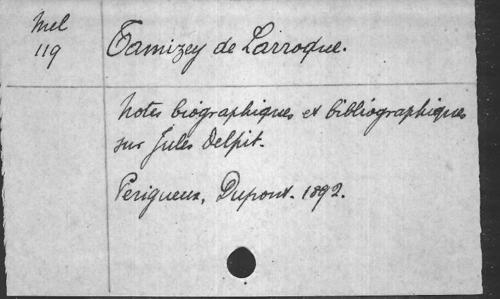 Mel
119
Tamizey de Larroque.
Notes biographiques et bibliographiques
sur Jules Delpit.
Perigueux, Dupont. 1892.